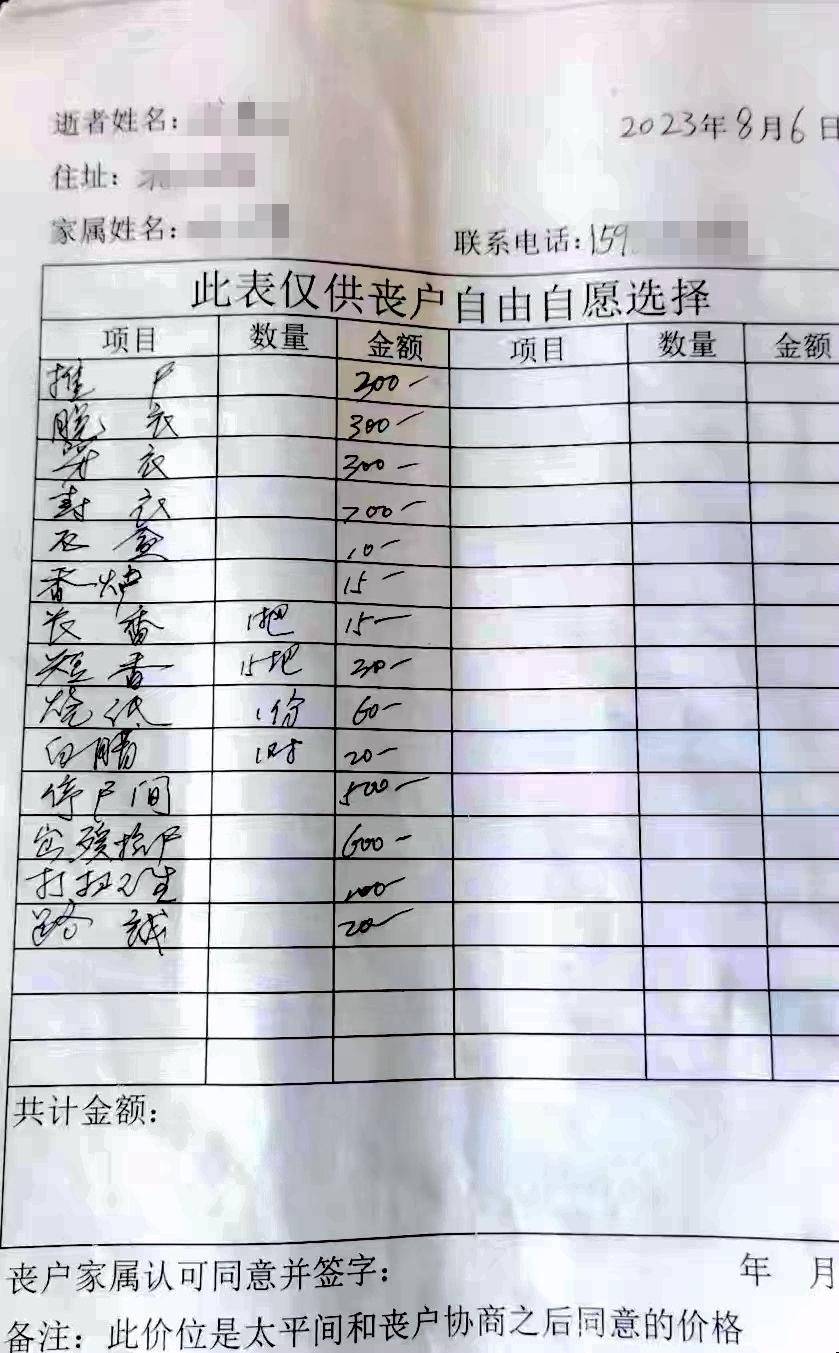 逝者姓名：
2023年8月6日
住址：
家属姓名：
联系电话：159
此表仅供丧户自由自愿选择
项目 数量 金额 项目 数量 金额
推尸 200-
脱衣 300-
穿衣 300-
封衣 200-
衣盒 10-
香炉 15-
长香 1把 15-
短香 15把 30-
烧纸 1份 60-
白腊 1对 20-
停尸间 500-
出殡抬尸 600-
打扫卫生 100-
20-
共计金额：
丧户家属认可同意并签字：
年 月
备注：此价位是太平间和丧户协商之后同意的价格